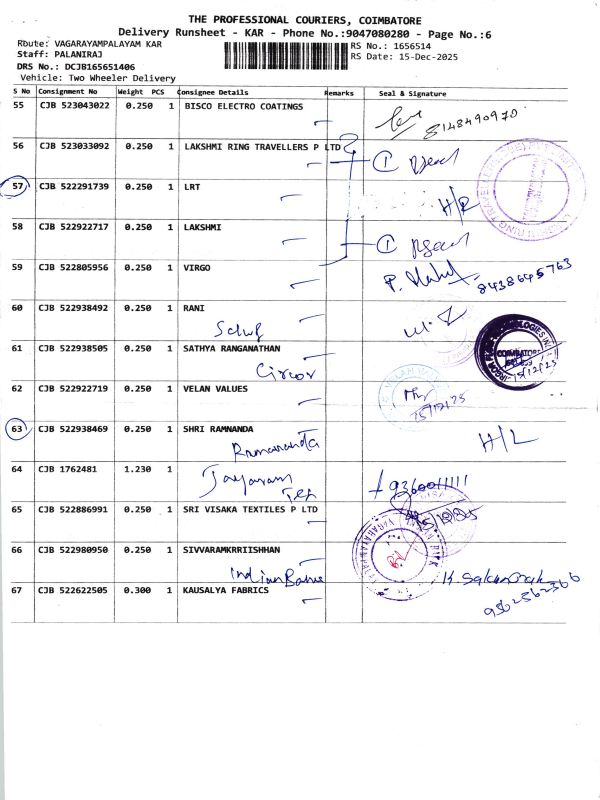 THE PROFESSIONAL COURIERS, COIMBATORE
Delivery Runsheet - KAR - Phone No.:9047080280 - Page No.:6
Route: VAGARAYAMPALAYAM KAR
RS No.: 1656514
Staff: PALANIRAJ
RS Date: 15-Dec-2025
DRS No.: DCJB165651406
Vehicle: Two Wheeler Delivery
S No Consignment No Weight PCS Consignee Details Remarks Seal & Signature
55 CJB 523043022 0.250 1 BISCO ELECTRO COATINGS
8148490970
56 CJB 523033092 0.250 1 LAKSHMI RING TRAVELLERS P LTD
57 CJB 522291739 0.250 1 LRT
H/R
58 CJB 522922717 0.250 1 LAKSHMI
59 CJB 522805956 0.250 1 VIRGO
8438645763
60 CJB 522938492 0.250 1 RANI
61 CJB 522938505 0.250 1 SATHYA RANGANATHAN
COIMBATORE
15/12/25
62 CJB 522922719 0.250 1 VELAN VALUES
15/12/25
63 CJB 522938469 0.250 1 SHRI RAMNANDA
Ramananda
H/L
64 CJB 1762481 1.230 1
Jayaram Tex
9360011111
65 CJB 522886991 0.250 1 SRI VISAKA TEXTILES P LTD
66 CJB 522980950 0.250 1 SIVVARAMKRRIISHHAN
Indian Bank
67 CJB 522622505 0.300 1 KAUSALYA FABRICS
9562562366